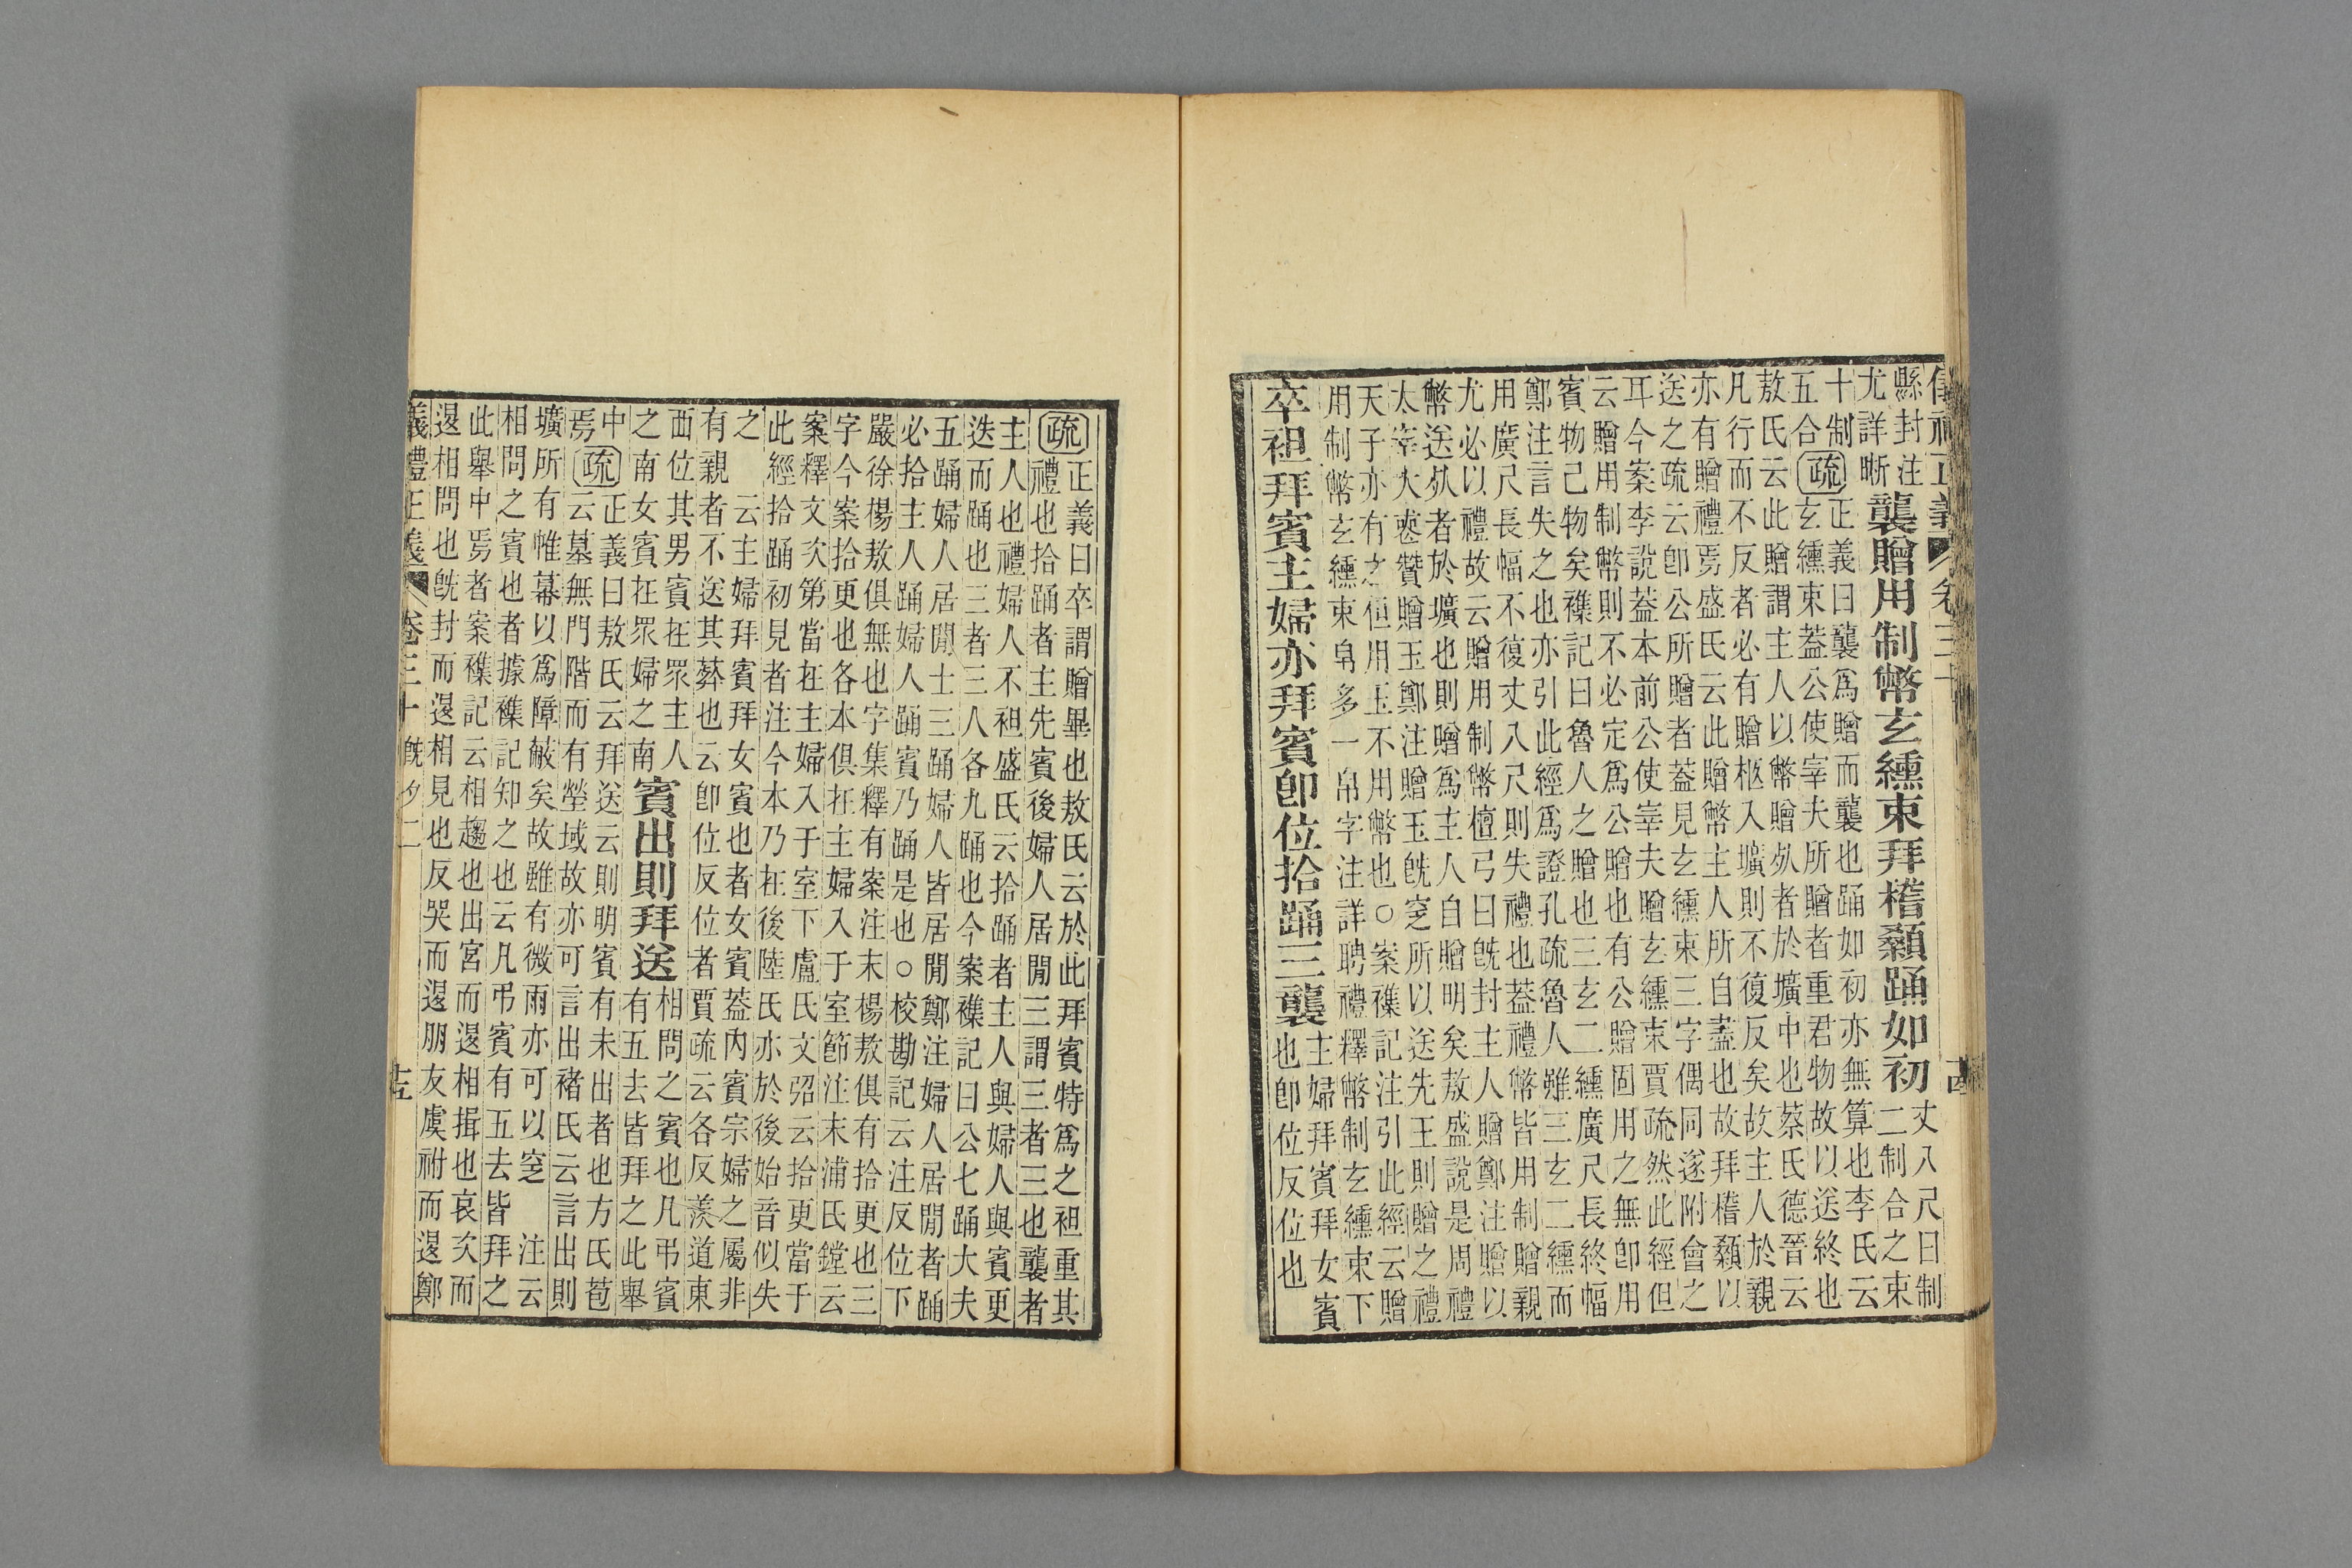 儀禮正義 卷三十
縣封注
尤詳晰
襲贈用制幣玄纁束拜稽顙踊如初
丈八尺曰制
二制合之束
十制
五合
疏
正義曰襲爲贈而襲也踊如初亦無算也李氏云
玄纁束蓋公使宰夫所贈者重君物故以送終也
敖氏云此贈謂主人以幣贈死者於壙中也蔡氏德晉云
凡行而不反者必有贈柩入壙則不復反矣故主人於親
亦有贈禮焉盛氏云此贈幣主人所自蓋也故拜稽顙以
送之疏云卽公所贈者蓋見玄纁束三字偶同遂附會之
耳今案李說蓋本前公使宰夫贈玄纁束賈疏然此經但
云贈用制幣則不必定爲公贈也有公贈固用之無卽用
賓物己物矣襍記曰魯人之贈也三玄二纁廣尺長終幅
鄭注言失之也亦引此經爲證孔疏魯人雖三玄二纁而
用廣尺長幅不復丈八尺則失禮也蓋禮幣皆用制贈親
尤必以禮故云贈用制幣檀弓曰旣封主人贈鄭注贈以
幣送死者於壙也則贈爲主人自贈明矣敖盛說是周禮
太宰大喪贊贈玉鄭注贈玉旣窆所以送先王則贈之禮
天子亦有之但用玉不用幣也○案襍記注引此經云贈
用制幣玄纁束帛多一帛字注詳聘禮釋幣制玄纁束下
卒袒拜賓主婦亦拜賓卽位拾踊三襲
主婦拜賓拜女賓
也卽位反位也
疏
正義曰卒謂贈畢也敖氏云於此拜賓特爲之袒重其
禮也拾踊者主先賓後婦人居閒三謂三者三也襲者
主人也禮婦人不袒盛氏云拾踊者主人與婦人與賓更
迭而踊也三者三人各九踊也今案襍記曰公七踊大夫
五踊婦人居閒士三踊婦人皆居閒鄭注婦人居閒者踊
必拾主人踊婦人踊賓乃踊是也○校勘記云注反位下
嚴徐楊敖俱無也字集釋有案注末楊敖俱有拾更也三
字今案拾更也各本俱在主婦入于室節注末浦氏鏜云
案釋文次第當在主婦入于室下盧氏文弨云拾更當于
此經拾踊初見者注今本乃在後陸氏亦於後始音似失
之 云主婦拜賓拜女賓也者女賓蓋內賓宗婦之屬非
有親者不送其葬也云卽位反位者賈疏云各反羨道東
西位其男賓在眾主人
之南女賓在眾婦之南
賓出則拜送
相問之賓也凡弔賓
有五去皆拜之此舉
中
焉
疏
正義曰敖氏云拜送云則明賓有未出者也方氏苞
云墓無門階而有塋域故亦可言出褚氏云言出則
壙所有帷幕以爲障蔽矣故雖有微雨亦可以窆 注云
相問之賓也者據襍記知之也云凡弔賓有五去皆拜之
此舉中焉者案襍記云相趨也出宮而退相揖也哀次而
退相問也旣封而退相見也反哭而退朋友虞祔而退鄭
義禮正義 卷三十 旣夕二